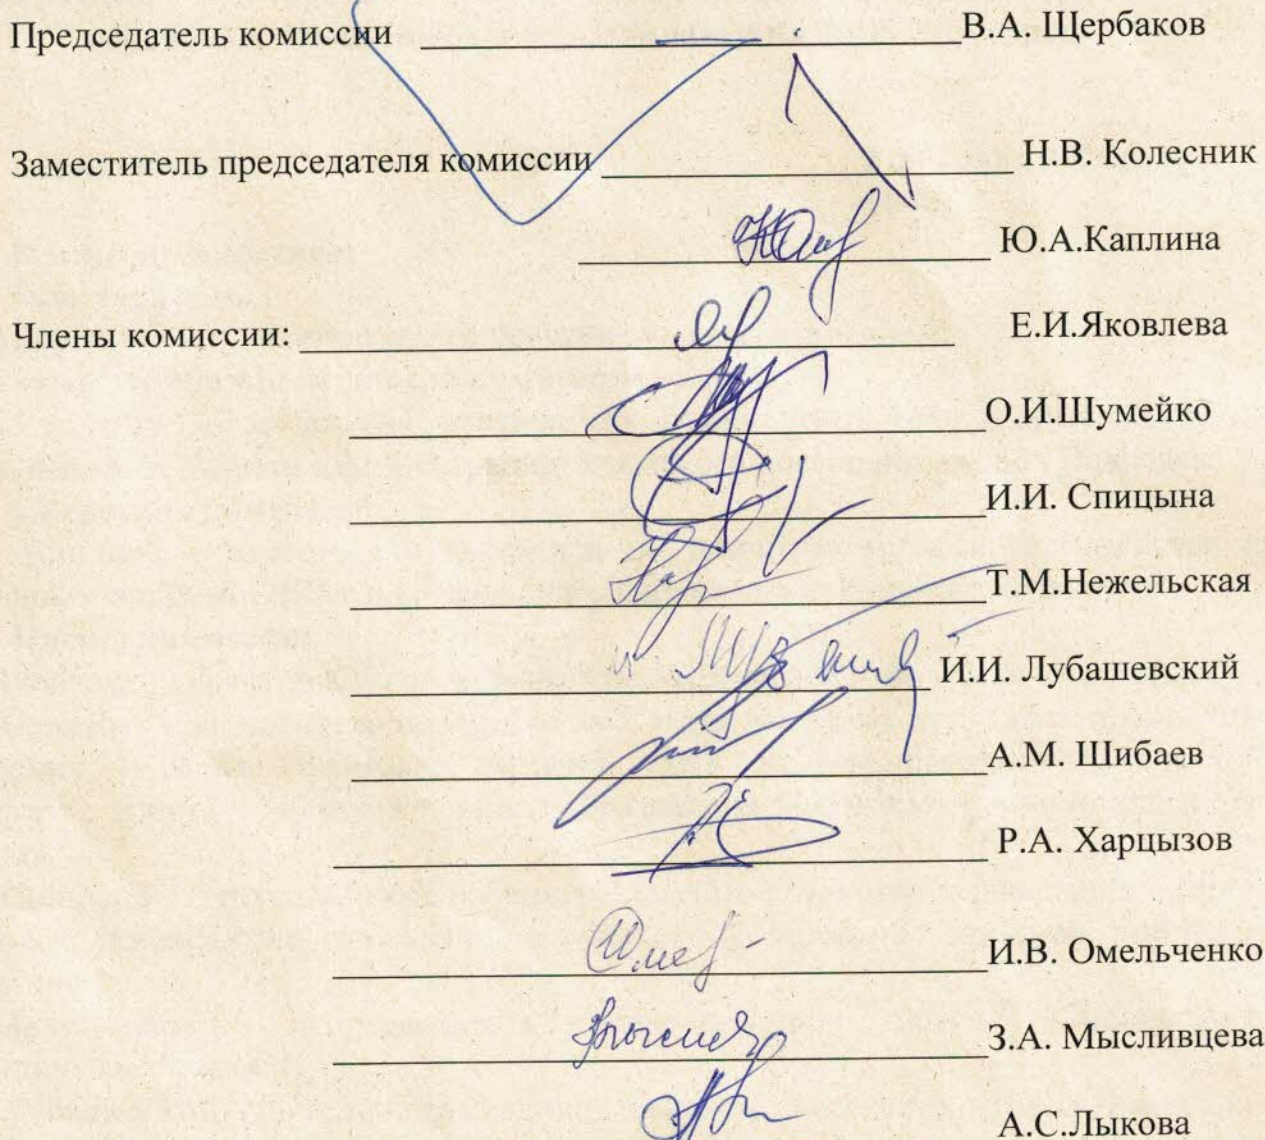 Председатель комиссии В.А. Щербаков
Заместитель председателя комиссии Н.В. Колесник
Ю.А.Каплина
Члены комиссии: Е.И.Яковлева
О.И.Шумейко
И.И. Спицына
Т.М.Нежельская
И.И. Лубашевский
А.М. Шибаев
Р.А. Харцызов
И.В. Омельченко
З.А. Мысливцева
А.С.Лыкова